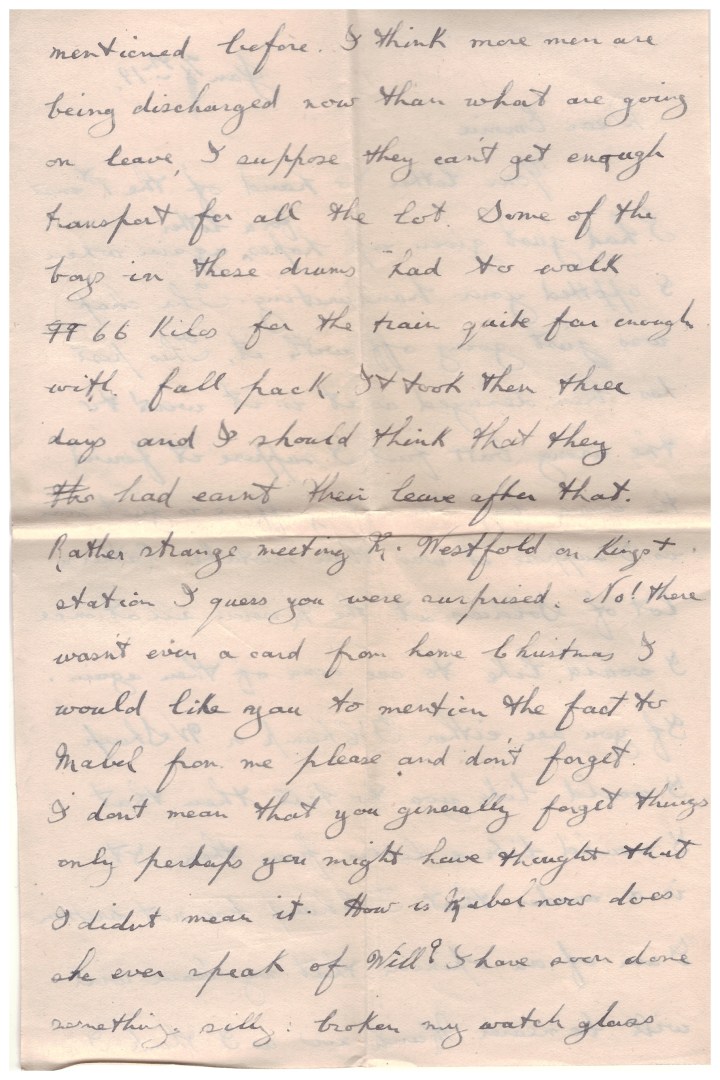 mentioned before. I think more men are
being discharged now than what are going
on leave, I suppose they can't get enough
transport for all the lot. Some of the
boys in these drums had to walk
66 Kilos for the train quite far enough
with full pack. It took them three
days and I should think that they
had earnt their leave after that.
Rather strange meeting Westfold on Kings +
station I guess you were surprised. No! there
wasn't even a card from home Christmas I
would like you to mention the fact to
Mabel from me please and don't forget.
I don't mean that you generally forget things
only perhaps you might have thought that
I didnt mean it. How is Mabel now does
she ever speak of Will? I have soon done
something silly: broken my watch glass